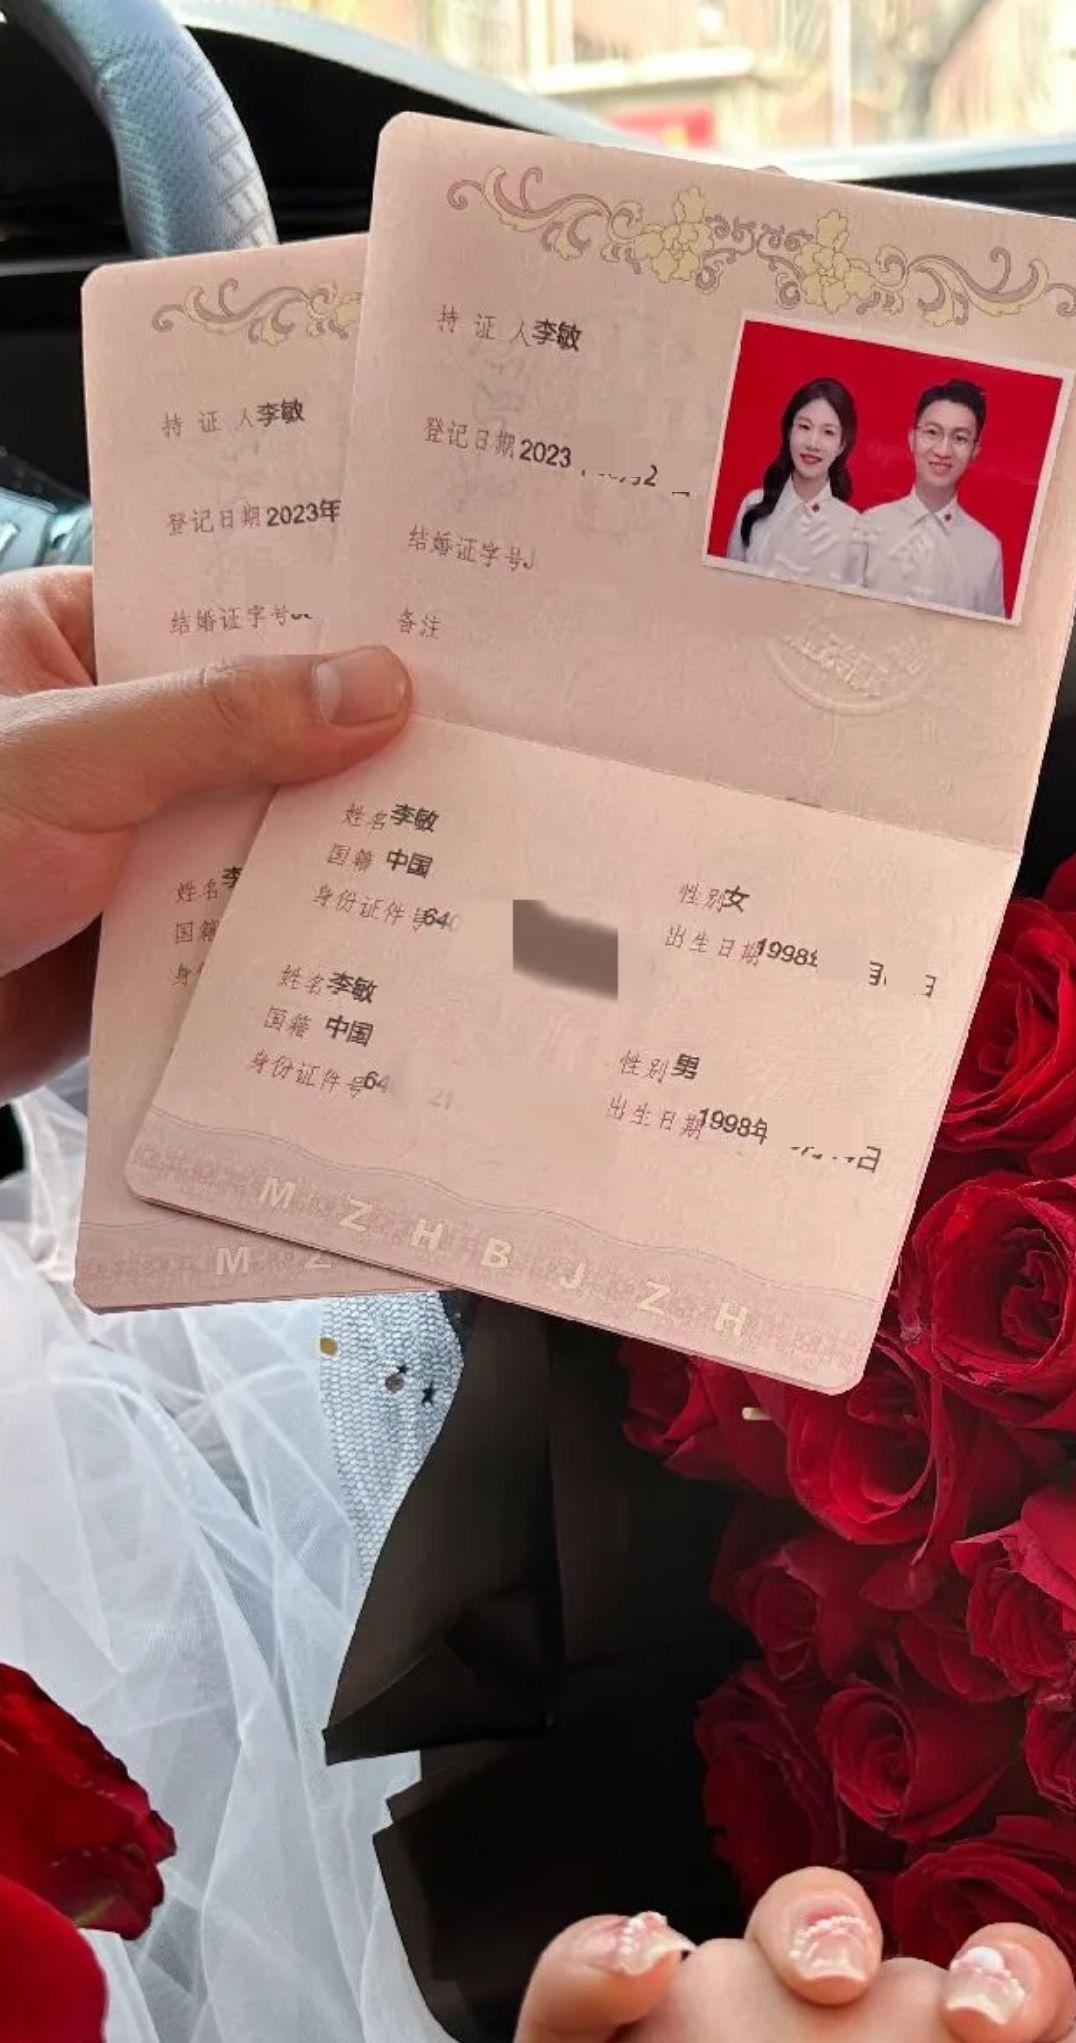 持证人李敏
登记日期2023年
结婚证字号
姓名李
国籍
身
M Z
持证人李敏
登记日期2023
结婚证字号J
备注
姓名李敏
性别女
国籍 中国
出生日期1998年 月 日
身份证件号640
姓名李敏
性别男
国籍 中国
出生日期1998年 月 日
身份证件号64
M Z H B J Z H